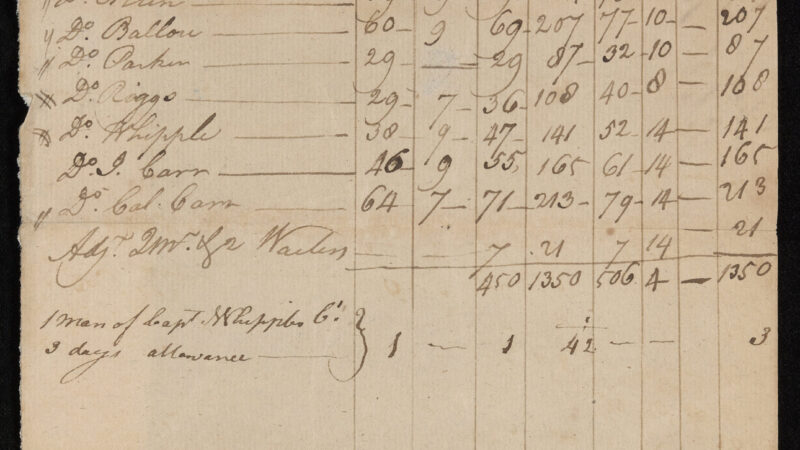 〃 Do. Ballou 60 9 69 207 77 10 — 207
〃 Do. Parker 29 — 29 87 32 10 — 87
〃 Do. Riggs 29 7 36 108 40 8 — 108
〃 Do. Whipple 38 9 47 141 52 14 — 141
Do. J. Carr 46 9 55 165 61 14 — 165
〃 Do. Cal. Carr 64 7 71 213 79 14 — 213
Adjt. Qmr. & 2 Waiters — — 7 21 7 14 — 21
450 1350 506 4 — 1350
1 man of Capt. Whipples Co.
3 days allowance 1 — 1 — — 3